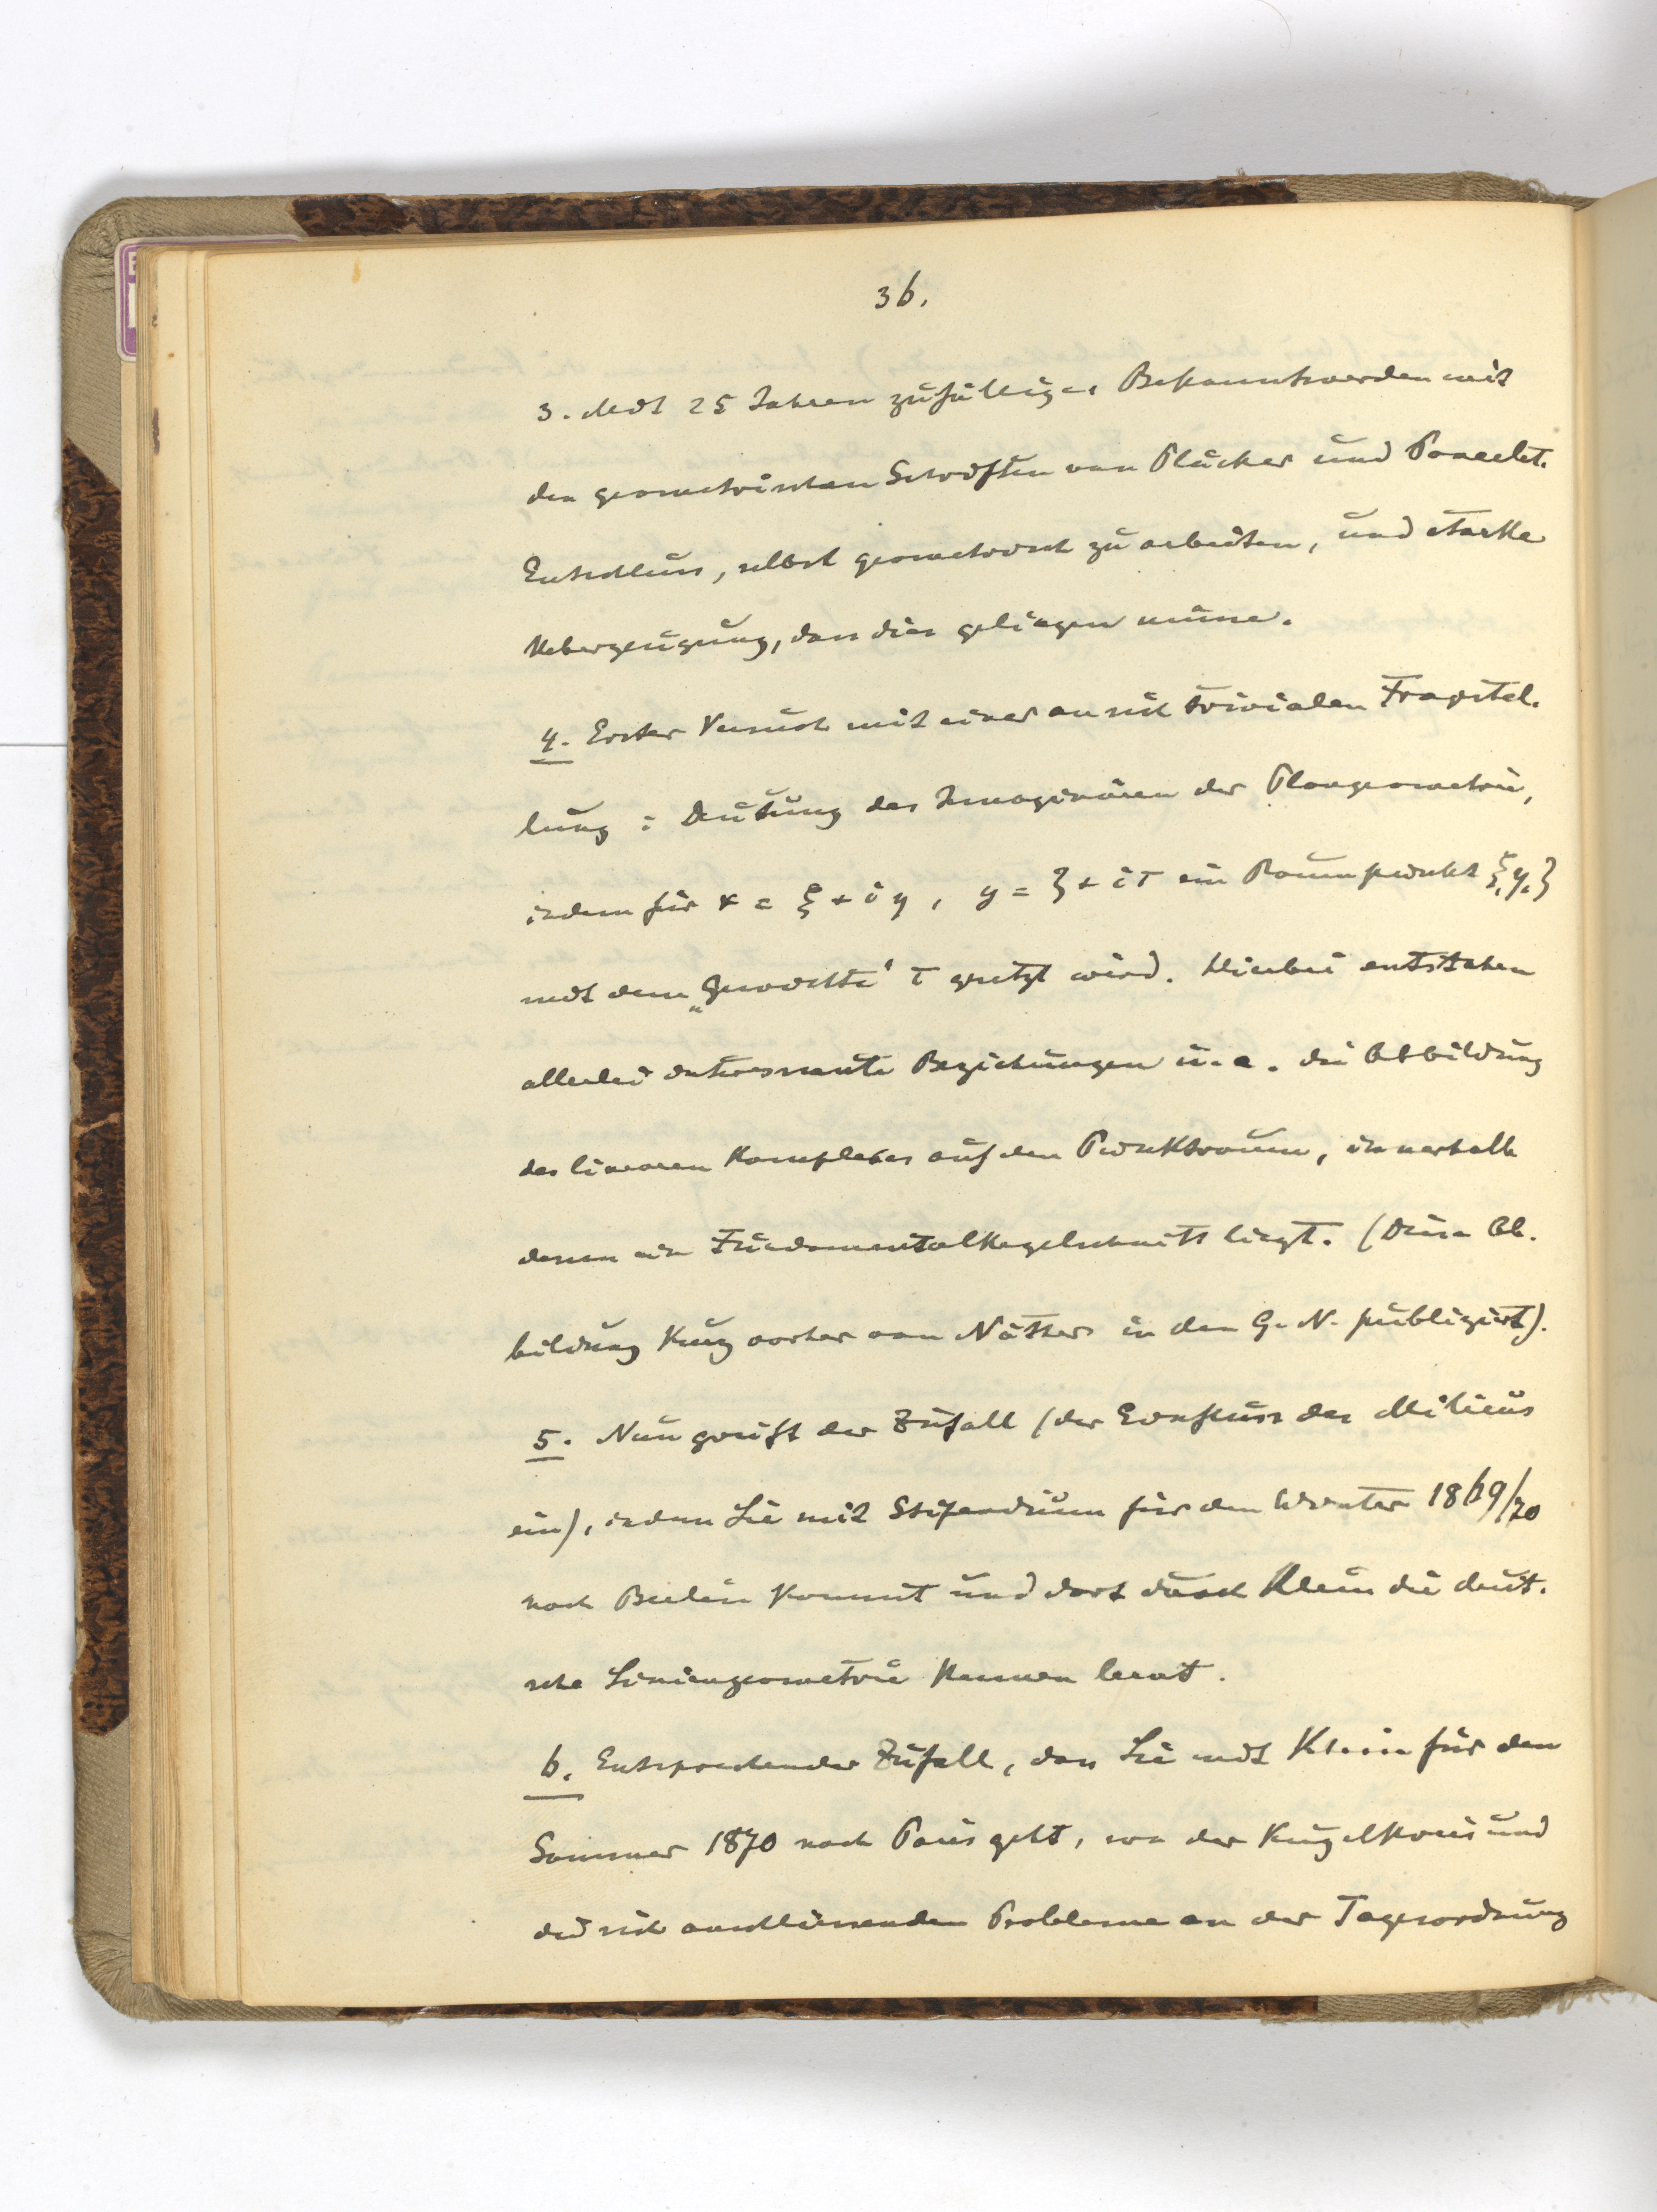 36.
3. Mit 25 Jahren zufälliges Bekanntwerden mit
den geometrischen Schriften von Plücker und Poncelet.
Entschluss, selbst geometrisch zu arbeiten, und starke
Ueberzeugung, dass dies gelingen müsse.
4. Erster Versuch mit einer an sich trivialen Fragstel-
lung: Deutung des Imaginären der Plangeometrie,
indem für x = ξ + iη, y = ζ + iτ ein Raumpunkt ξ, η, ζ
mit dem „Gewichte" τ gesetzt wird. Hierbei entstehen
allerlei interessante Beziehungen u. a. die Abbildung
des linearen Komplexes auf den Punktraum, innerhalb
dessen ein Fundamentalkegelschnitt liegt. (Diese Ab-
bildung kurz vorher von Nöther in den G. N. publiziert).
5. Nun greift der Zufall (der Einfluss des Milieus
ein), indem Lie mit Stipendium für den Winter 1869/70
nach Berlin kommt und dort durch Klein die deut-
sche Liniengeometrie kennen lernt.
6. Entsprechender Zufall, dass Lie mit Klein für den
Sommer 1870 nach Paris geht, wo der Kugelkreis und
die sich anschliessenden Probleme an der Tagesordnung